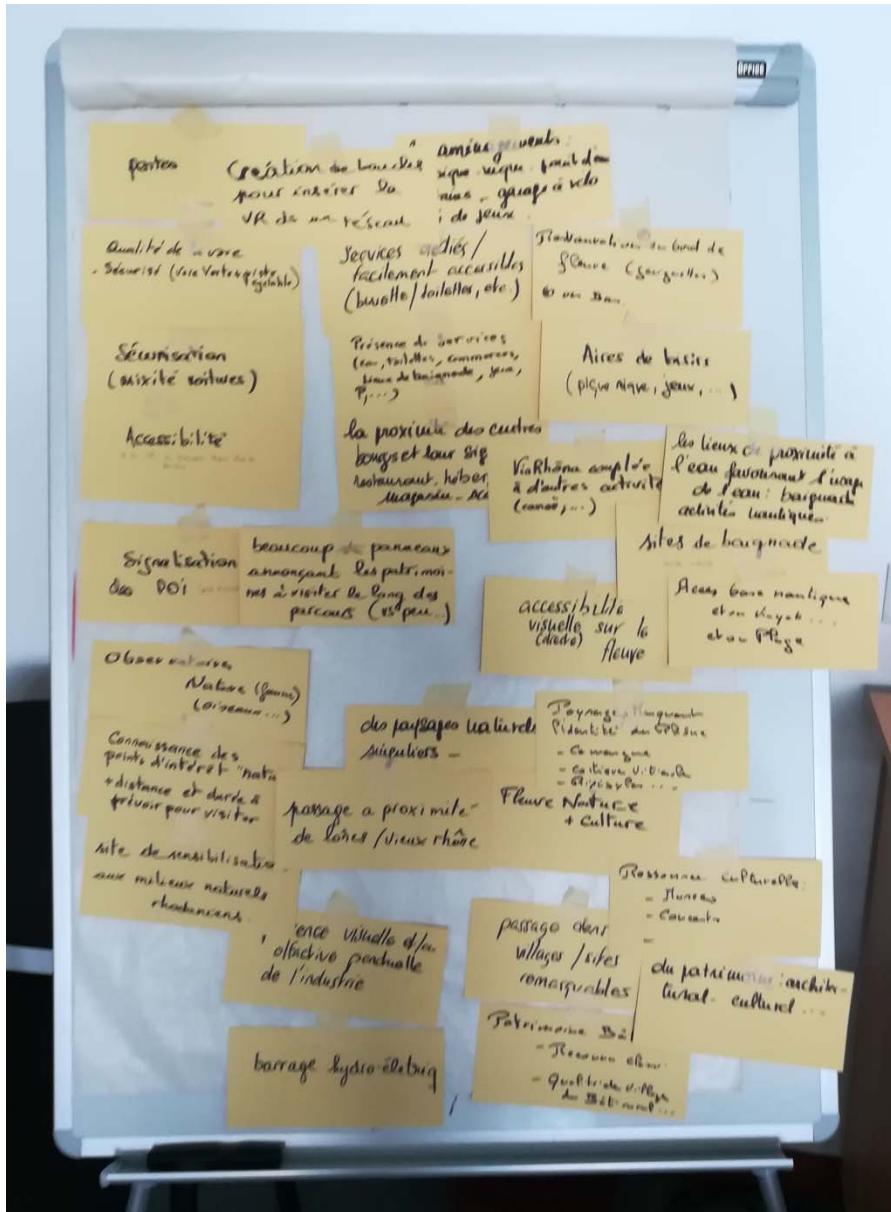 OFFICE
pentes
Création de boucles
pour insérer la
VR ds un réseau
aménagements:
pique-nique point d'eau
garage à vélo
de jeux
Qualité de voie
- Sécurisé (Voie Verte, piste
cyclable)
Services
facilement accessibles
(buvette/toilettes, etc.)
fleuve (guinguettes)
Sécurisation
(mixité voitures)
Présence de services
(eau, toilettes, commerces,
lieux de baignade, jeux,
P, ...)
Aires de loisirs
(pique nique, jeux, ...)
Accessibilité
la proximité des centres
bourgs et leur sig
restaurant, héber
magasin
ViaRhôna couplée
à d'autres activité
(canoë, ...)
les lieux de proximité à
l'eau favorisant l'usage
de l'eau: baignade
activités nautiques.
Signalisation
des POI
beaucoup de panneaux
annonçant les patrimoi-
nes à visiter le long des
parcours (vs peu...)
sites de baignade
accessibilité
visuelle sur le
(directe) fleuve
Acces base nautique
et ou Kayak ...
et ou Plage
Observatoires
Nature (faune)
(oiseaux...)
Connaissance des
points d'intérêt "natu
+ distance et durée à
prévoir pour visiter
des paysages naturels
singuliers -
Paysages marquant
l'identité du Rhône
- Camargue
passage a proximité
de lônes / vieux rhône
Fleuve Nature
+ Culture
site de sensibilisatio
aux milieux naturels
rhodaniens.
ence visuelle et/ou
olfactive ponctuelle
de l'industrie
passage dans
villages / sites
remarquables
culturelle:
- Musées
- Couvents
-
du patrimoine: archite-
tural - culturel ...
barrage hydro-életriq
Patrimoine Bâ
- Qualité du village
du Bâti rural...